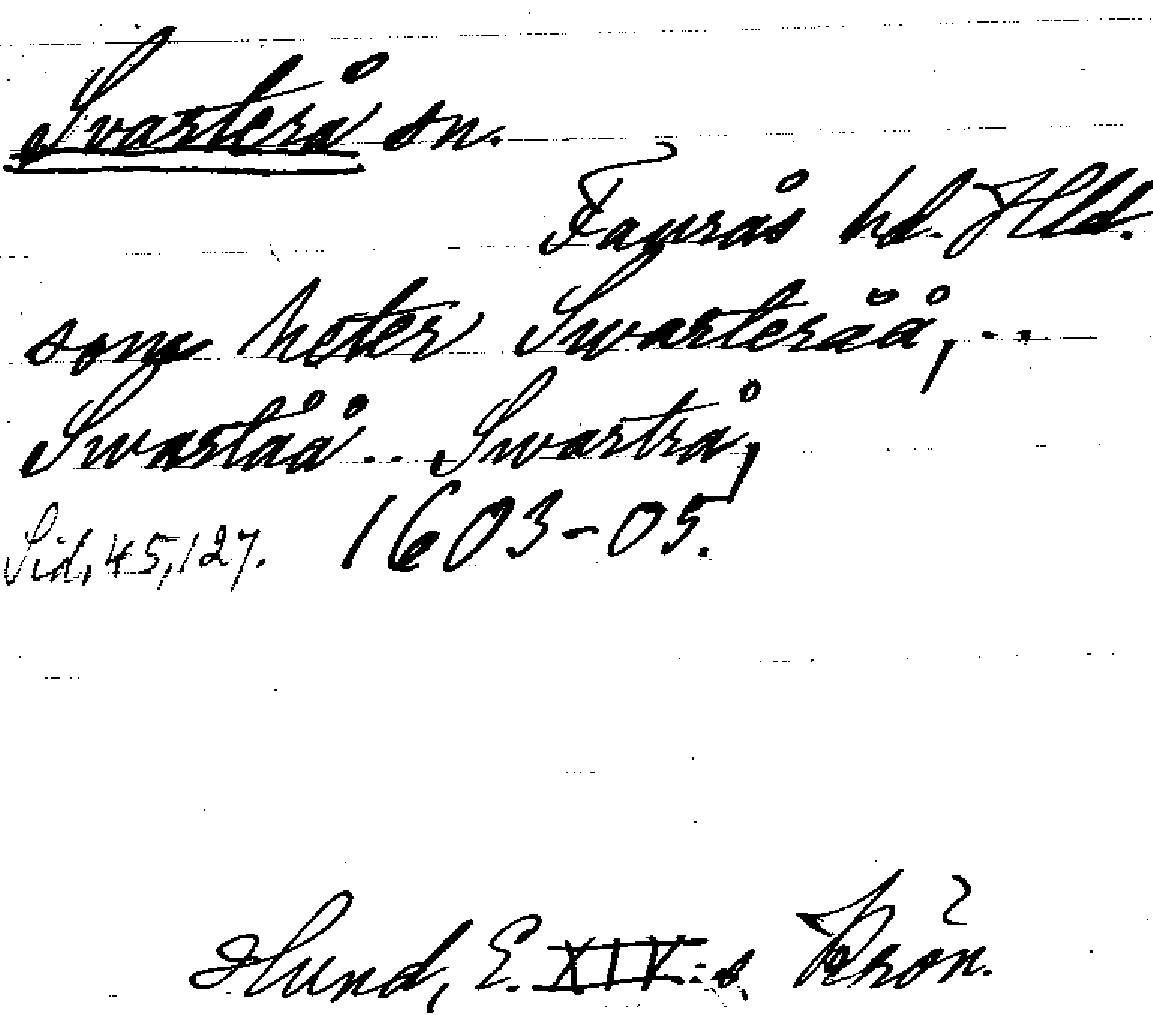 Svarterå sn.
Faurås hd. Hld.
som heter Swarteråå, ..
Swartåå .. Swartrå,
1603-05.
Sid, 45, 127.
Hund, E. XIV:s Krön.